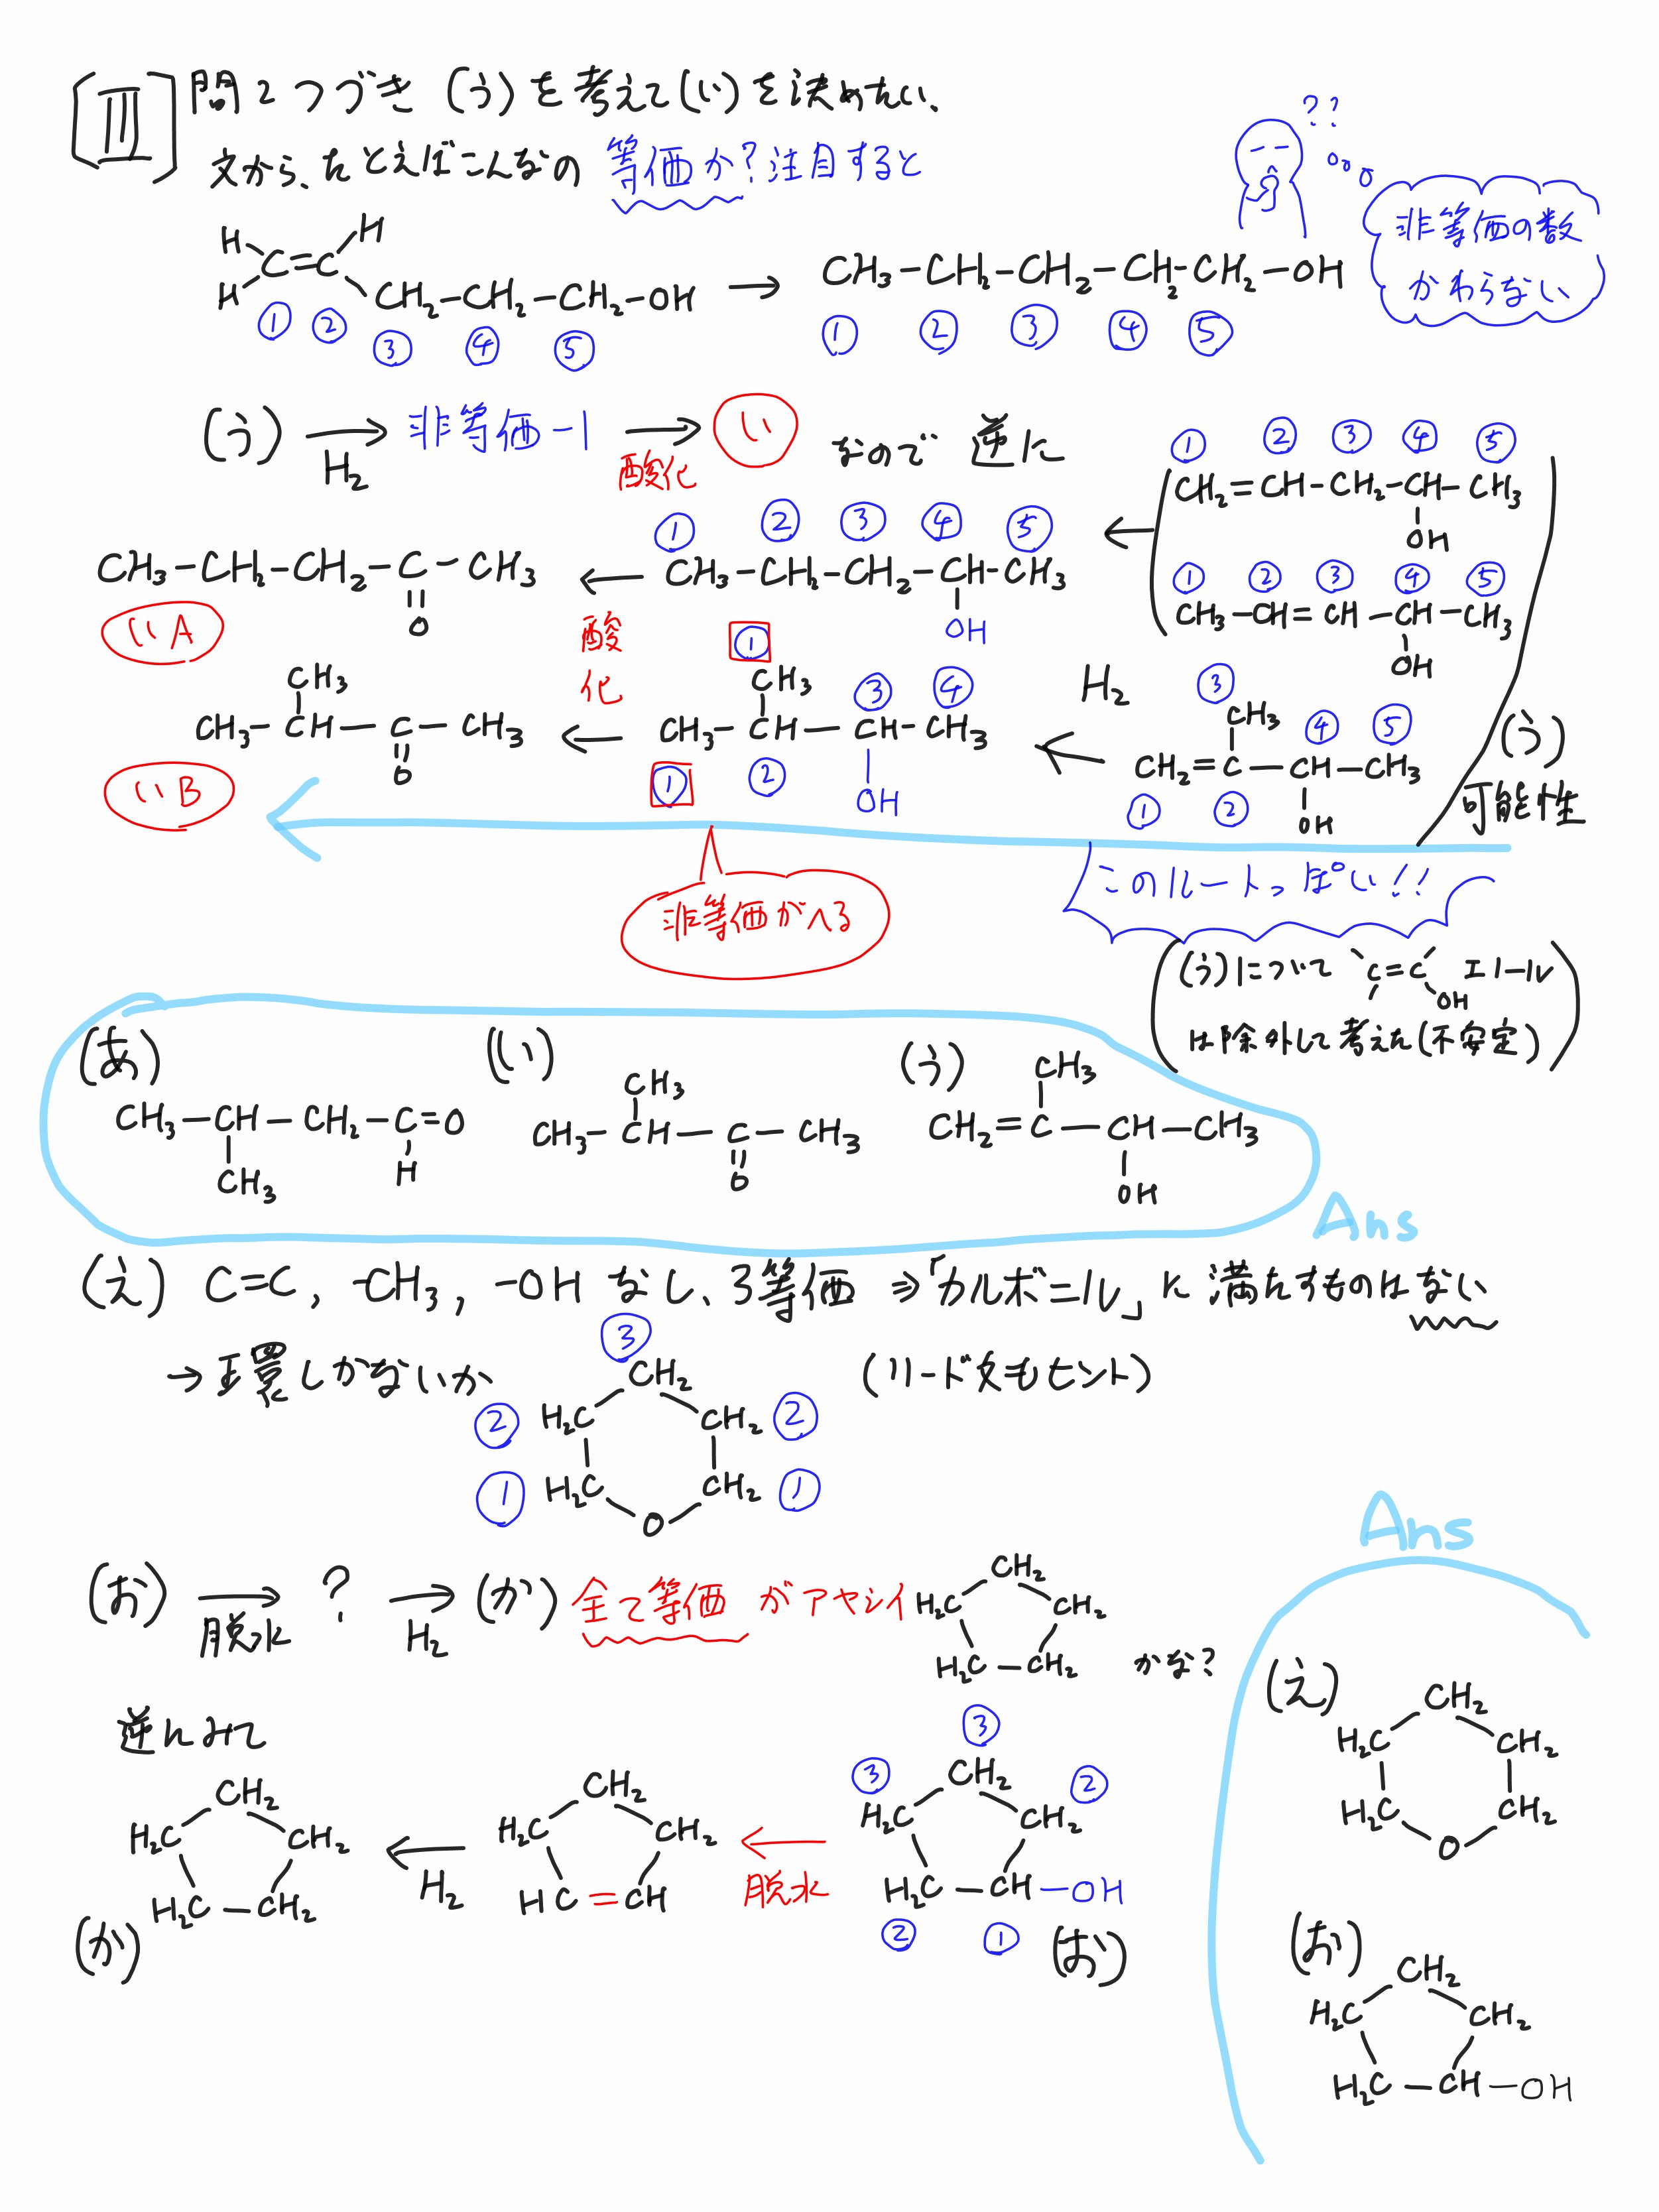 [III] 問2つづき (う)を考えて(い)を決めたい.
文から、たとえばこんなの 等価か?注目すると
??
非等価の数
かわらない
H H
C=C
H CH2-CH2-CH2-OH → CH3-CH2-CH2-CH2-CH2-OH
① ② ③ ④ ⑤ ① ② ③ ④ ⑤
(う) →H2 非等価-1 →酸化 い なので 逆に
① ② ③ ④ ⑤
CH2=CH-CH2-CH-CH3
OH
① ② ③ ④ ⑤
CH3-CH=CH-CH-CH3
OH
① ② ③ ④ ⑤
CH3-CH2-CH2-C-CH3 ← CH3-CH2-CH2-CH-CH3 ←
O 酸化 OH
いA
①
CH3 CH3 ③ ④ H2 ③ CH3 ④ ⑤
CH3-CH-C-CH3 ← CH3-CH-CH-CH3 ← CH2=C-CH-CH3
O ① ② OH ① ② OH
いB
(う)
可能性
非等価がへる
このルートっぽい!!
(う)について C=C OH エノール
は除外して考えた(不安定)
(あ) (い) (う)
CH3-CH-CH2-C=O
CH3 H
CH3
CH3-CH-C-CH3
O
CH3
CH2=C-CH-CH3
OH
Ans
(え) C=C, -CH3, -OH なし、3等価 ⇒「カルボニル」に満たすものはない
→ 環しかないか (リード文もヒント)
③
CH2
② H2C CH2 ②
① H2C CH2 ①
O
(お) →脱水 ? →H2 (か) 全て等価 がアヤシイ
CH2
H2C CH2
H2C-CH2 かな?
逆にみて
CH2
H2C CH2
H2C-CH2
(か)
← H2
CH2
H2C CH2
HC=CH
← 脱水
③
③ CH2 ②
H2C CH2
H2C-CH-OH
② ①
(お)
Ans
(え)
CH2
H2C CH2
H2C CH2
O
(お)
CH2
H2C CH2
H2C-CH-OH